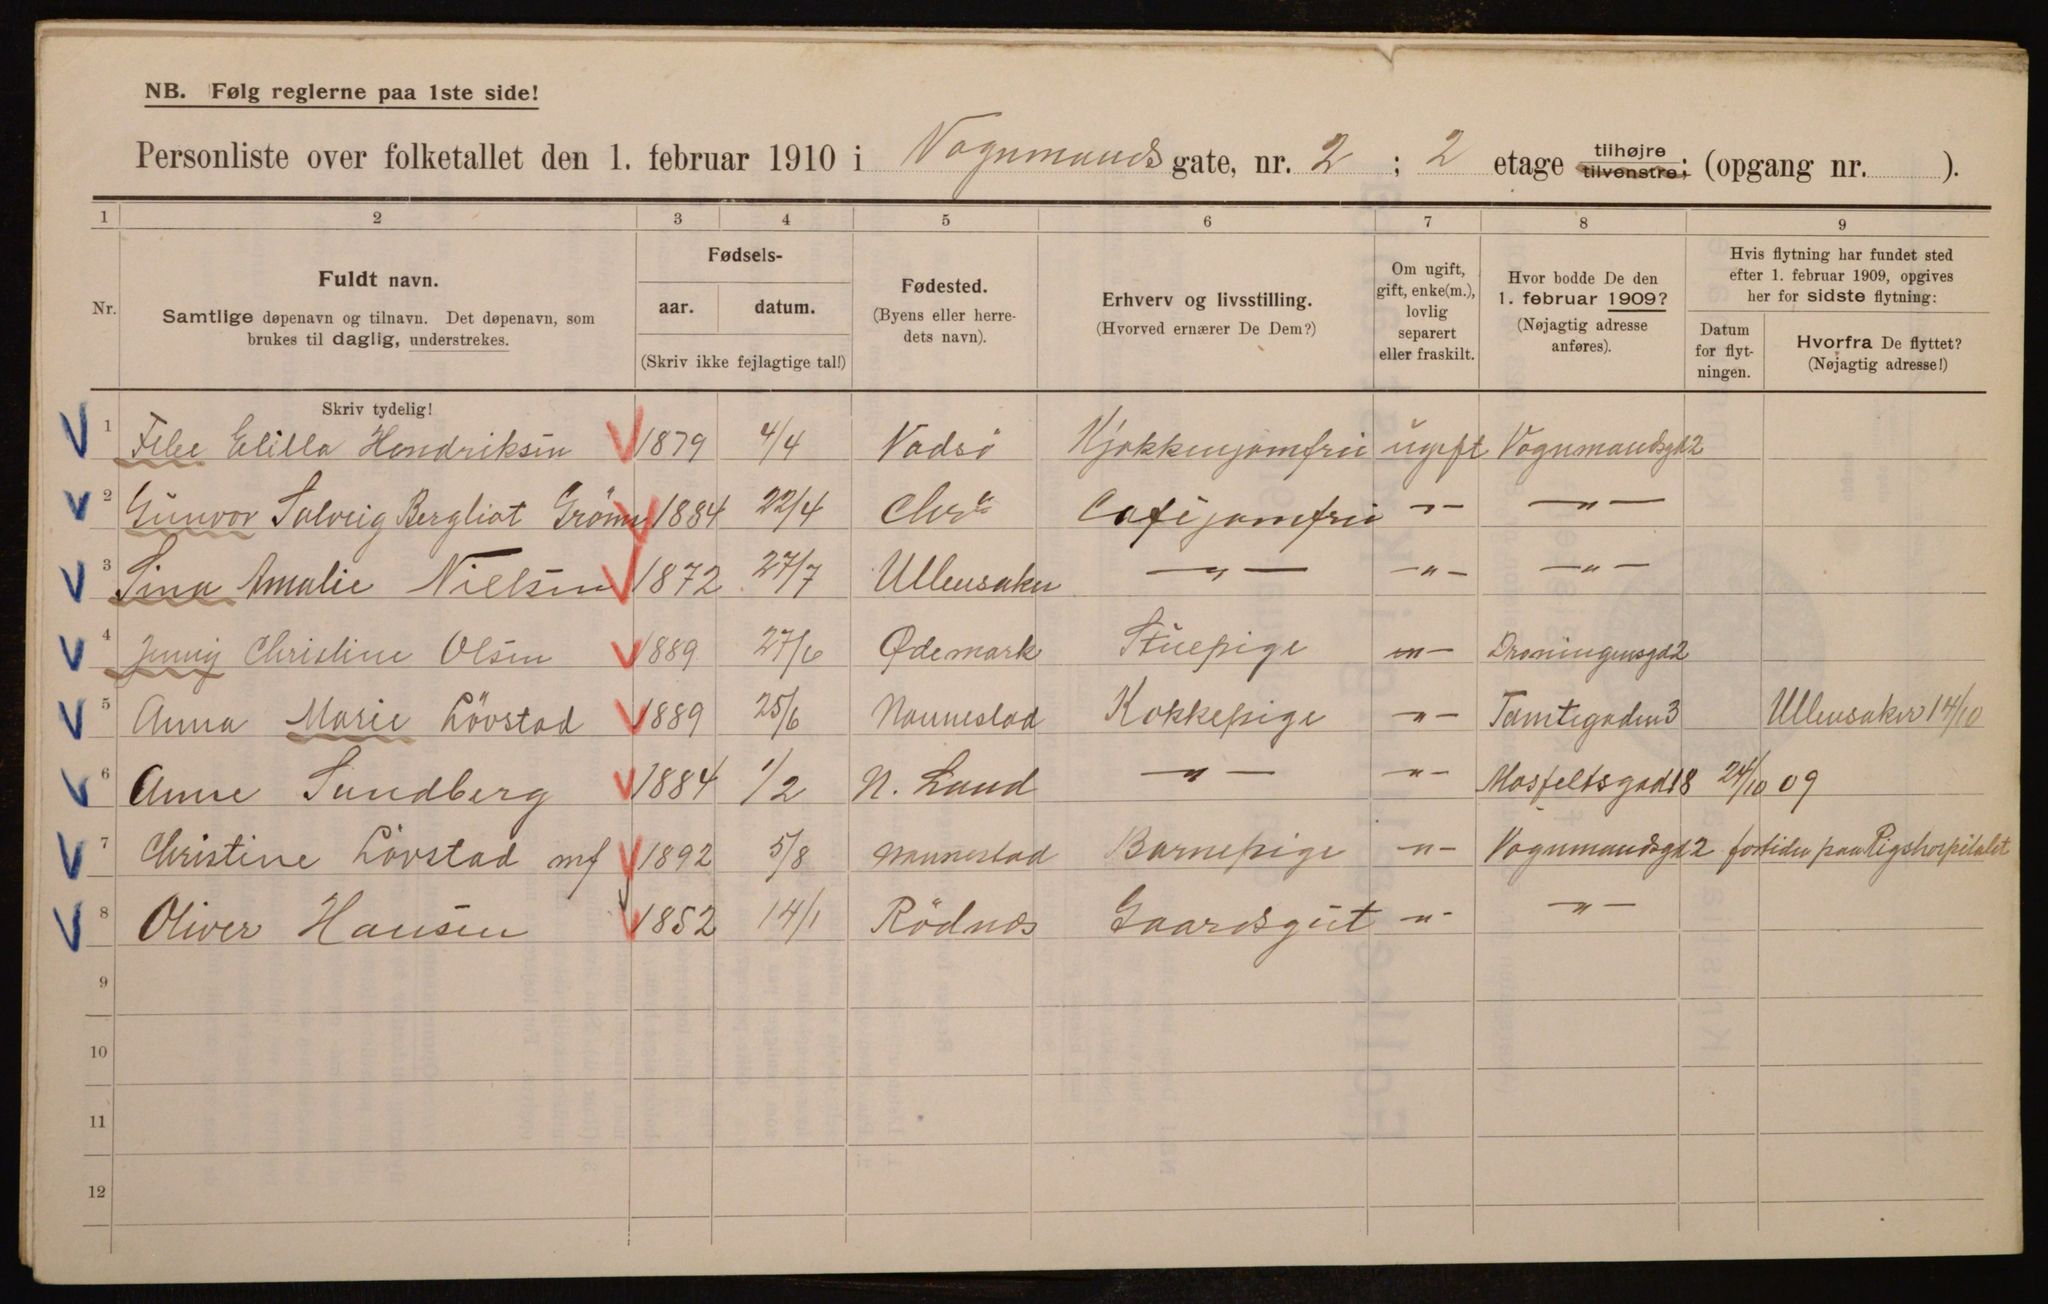 NB. Følg reglerne paa 1ste side!
Personliste over folketallet den 1. februar 1910 i Vognmands gate, nr. 2 ; 2 etage tilhøjre tilvenstre; (opgang nr. ).
1 2 3 4 5 6 7 8 9
Nr.
Fuldt navn.
Samtlige døpenavn og tilnavn. Det døpenavn, som
brukes til daglig, understrekes.
Fødsels-
aar. datum.
(Skriv ikke fejlagtige tal!)
Fødested.
(Byens eller herre-
dets navn).
Erhverv og livsstilling.
(Hvorved ernærer De Dem?)
Om ugift,
gift, enke(m.),
lovlig
separert
eller fraskilt.
Hvor bodde De den
1. februar 1909?
(Nøjagtig adresse
anføres).
Hvis flytning har fundet sted
efter 1. februar 1909, opgives
her for sidste flytning:
Datum
for flyt-
ningen.
Hvorfra De flyttet?
(Nøjagtig adresse!)
Skriv tydelig!
1 Elilla Hendriksen 1879 4/4 Vadsö Kjøkkenjomfru ugift Vognmandsgd 2
2 Gunvor Solveig Bergliot 1884 22/4 Chra Caféjomfru -„- -„-
3 Sina Amalie Nielsen 1872 27/7 Ullensaker -„- -„- -„-
4 Jenny Christine Olsen 1889 27/6 Ødemark Stuepige -„- Droningensgd 2
5 Anna Marie Lövstad 1889 25/6 Nannestad Kokkepige -„- Tomtegaden 3 Ullensaker 14/10
6 Anne Sundberg 1884 1/2 N. Land -„- -„- 24/10 09
7 Christine Lövstad mf 1892 5/8 Nannestad Barnepige -„- Vognmandsgd 2 fortiden paa Rigshospitalet
8 Oliver Hansen 1852 14/1 Rödnæs Gaardsgut -„- -„-
9
10
11
12